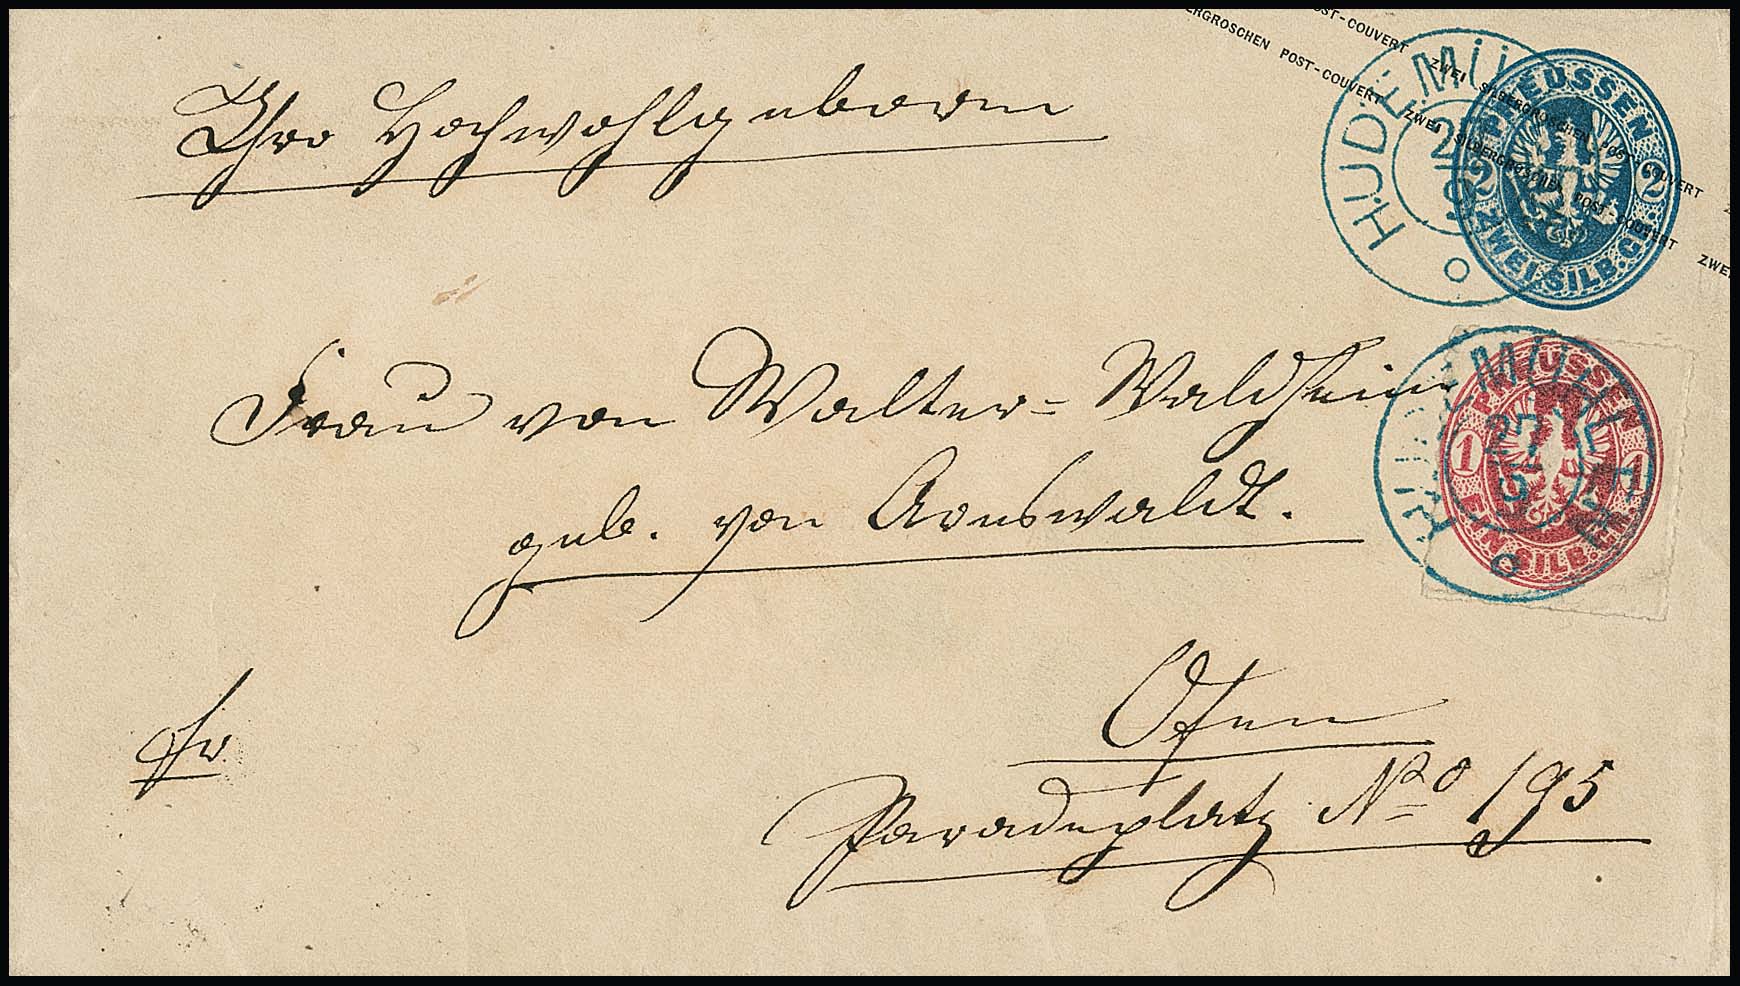 SILBERGROSCHEN POST-COUVERT ZWEI SILBERGROSCHEN POST-COUVERT ZWEI
POST-COUVERT ZWEI SILBERGROSCHEN POST-COUVERT
PREUSSEN
2 2
ZWEI.SILB.GR.
HUDEMÜ
Ihro Hochwohlgeboren
PREUSSEN
1 1
EIN SILB.GR.
HUDEMÜHLEN
27
9
Frau von Walter-Waldheim
geb. von Arnswaldt.
fr
Ofen
Paradeplatz No 195